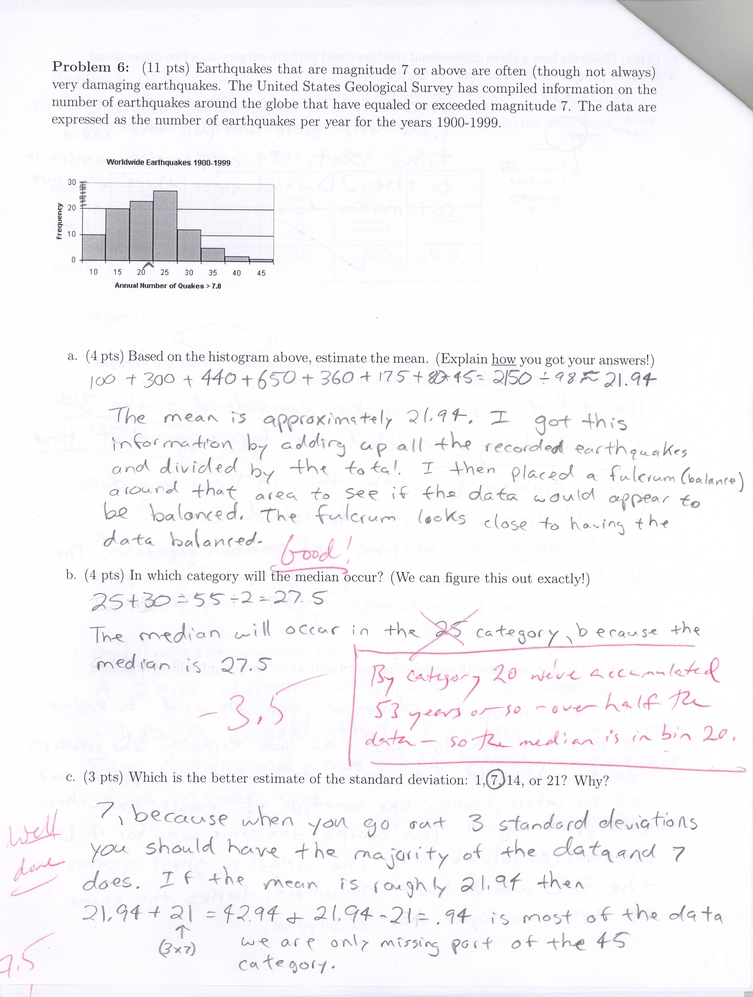 Problem 6: (11 pts) Earthquakes that are magnitude 7 or above are often (though not always)
very damaging earthquakes. The United States Geological Survey has compiled information on the
number of earthquakes around the globe that have equaled or exceeded magnitude 7. The data are
expressed as the number of earthquakes per year for the years 1900-1999.
Worldwide Earthquakes 1900-1999
Frequency
30
20
10
0
10 15 20 25 30 35 40 45
Annual Number of Quakes > 7.0
a. (4 pts) Based on the histogram above, estimate the mean. (Explain how you got your answers!)
100 + 300 + 440 + 650 + 360 + 175 + 80 + 45 = 2150 ÷ 98 ≈ 21.94
The mean is approximately 21.94. I got this
information by adding up all the recorded earthquakes
and divided by the total. I then placed a fulcrum (balance)
around that area to see if the data would appear to
be balanced. The fulcrum looks close to having the
data balanced.
Good!
b. (4 pts) In which category will the median occur? (We can figure this out exactly!)
25+30=55÷2=27.5
The median will occur in the 25 category, because the
median is 27.5
-3.5
By category 20 we've accumulated
53 years or so - over half the
data - so the median is in bin 20.
c. (3 pts) Which is the better estimate of the standard deviation: 1, 7, 14, or 21? Why?
7, because when you go out 3 standard deviations
you should have the majority of the data and 7
does. If the mean is roughly 21.94 then
21.94 + 21 = 42.94 + 21.94 - 21 = .94 is most of the data
(3x7)
we are only missing part of the 45
category.
Well
done
7.5